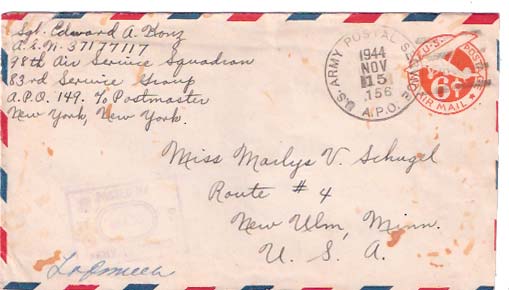 Sgt. Edward A. Konz
A.S.N. 37177117
98th Air Service Squadron
83rd Service Group
A.P.O. 149. % Postmaster
New York, New York.
U.S. ARMY POSTAL S
A.P.O.
1944
NOV
15
156
U.S. POSTAGE
6¢
AIR MAIL
Miss Marlys V. Schugel
Route # 4
New Ulm, Minn.
U. S. A.